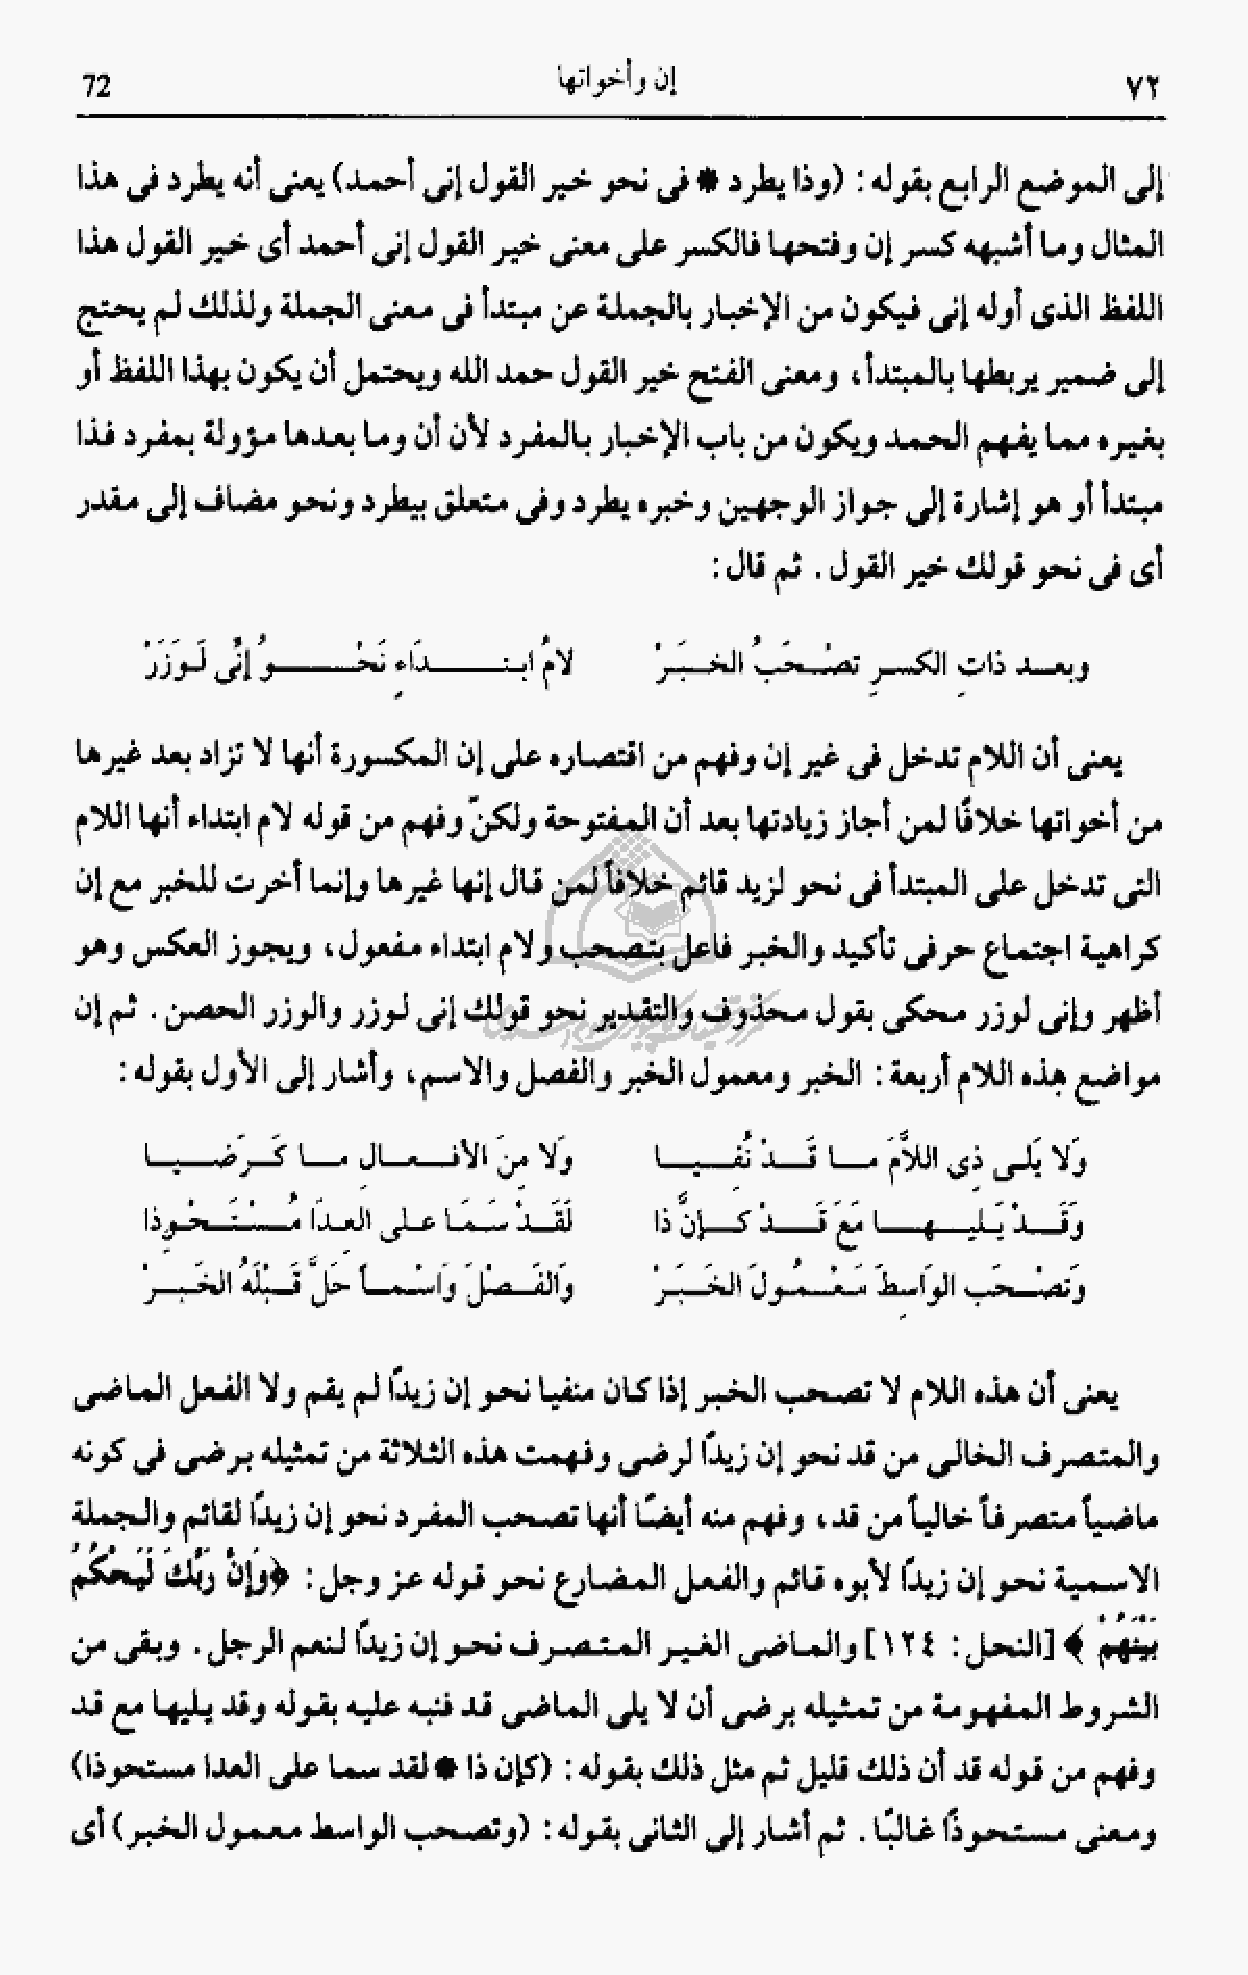 ٧٢ إن وأخواتها 72
إلى الموضع الرابع بقوله : (وذا يطرد * فى نحو خير القول إنى أحمد) يعنى أنه يطرد فى هذا
المثال وما أشبهه كسر إن وفتحها فالكسر على معنى خير القول إنى أحمد أى خير القول هذا
اللفظ الذى أوله إنى فيكون من الإخبار بالجملة عن مبتدأ فى معنى الجملة ولذلك لم يحتج
إلى ضمير يربطها بالمبتدأ، ومعنى الفتح خير القول حمد الله ويحتمل أن يكون بهذا اللفظ أو
بغيره مما يفهم الحمد ويكون من باب الإخبار بالمفرد لأن أن وما بعدها مؤولة بمفرد فذا
مبتدأ أو هو إشارة إلى جواز الوجهين وخبره يطرد وفى متعلق بيطرد ونحو مضاف إلى مقدر
أى فى نحو قولك خير القول . ثم قال :
وبعد ذاتِ الكسرِ تصْحَبُ الخبَرْ لامُ ابتداءٍ نَحْوُ إنِّى لَوَزَرْ
يعنى أن اللام تدخل فى غير إن وفهم من اقتصاره على إن المكسورة أنها لا تزاد بعد غيرها
من أخواتها خلافًا لمن أجاز زيادتها بعد أن المفتوحة ولكنّ وفهم من قوله لام ابتداء أنها اللام
التى تدخل على المبتدأ فى نحو لزيد قائم خلافاً لمن قال إنها غيرها وإنما أخرت للخبر مع إن
كراهية اجتماع حرفى تأكيد والخبر فاعل بتصحب ولام ابتداء مفعول، ويجوز العكس وهو
أظهر وإنى لوزر محكى بقول محذوف والتقدير نحو قولك إنى لوزر والوزر الحصن . ثم إن
مواضع هذه اللام أربعة : الخبر ومعمول الخبر والفصل والاسم، وأشار إلى الأول بقوله :
وَلا يَلى ذِى اللاَّمَ ما قَدْ نُفِيا وَلا مِنَ الأفعالِ ما كَرَضِيا
وَقَدْ يَليها مَعَ قَدْ كإنَّ ذا لَقَدْ سَمَا على العِدَا مُسْتَحْوِذا
وَتصْحَب الوَاسِطَ مَعْمُولَ الخَبَرْ وَالفَصْلَ وَاسْماً حَلَّ قَبْلَهُ الخَبَرْ
يعنى أن هذه اللام لا تصحب الخبر إذا كان منفيا نحو إن زيداً لم يقم ولا الفعل الماضى
والمتصرف الخالى من قد نحو إن زيداً لرضى وفهمت هذه الثلاثة من تمثيله برضى فى كونه
ماضياً متصرفاً خالياً من قد، وفهم منه أيضاً أنها تصحب المفرد نحو إن زيداً لقائم والجملة
الاسمية نحو إن زيداً لأبوه قائم والفعل المضارع نحو قوله عز وجل : ﴿وَإِنَّ رَبَّكَ لَيَحْكُمُ
بَيْنَهُمْ ﴾ [النحل : ١٢٤] والماضى الغير المتصرف نحو إن زيداً لنعم الرجل . وبقى من
الشروط المفهومة من تمثيله برضى أن لا يلى الماضى قد فنبه عليه بقوله وقد يليها مع قد
وفهم من قوله قد أن ذلك قليل ثم مثل ذلك بقوله : (كإن ذا * لقد سما على العدا مستحوذا)
ومعنى مستحوذاً غالبًا . ثم أشار إلى الثانى بقوله : (وتصحب الواسط معمول الخبر) أى